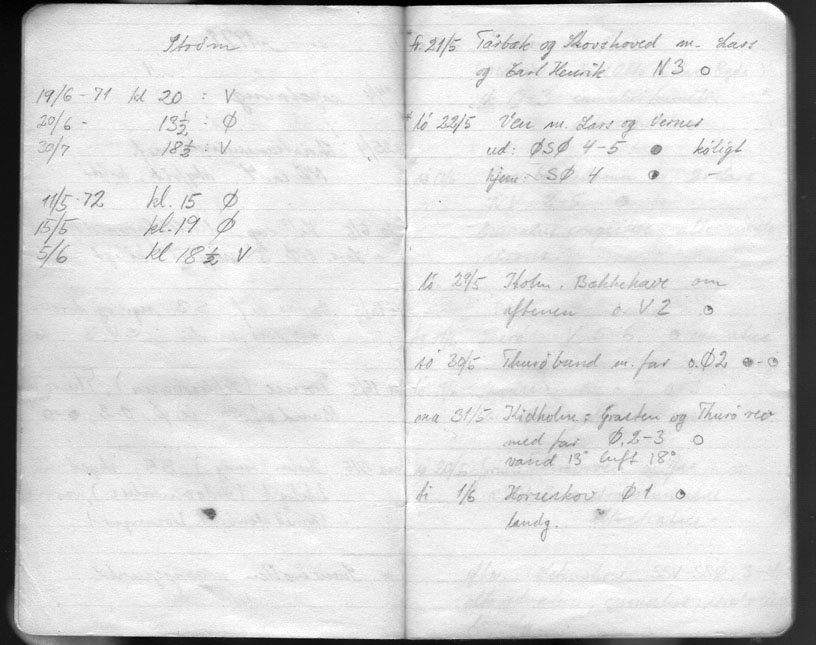 Strøm
19/6-71 kl 20 : V
20/6 - 13½ : Ø
30/7 18½ : V
11/5-72 kl. 15 Ø
15/5 kl. 19 Ø
5/6 kl 18½ V
fr. 21/5 Tårbæk og Skovshoved m. Lars
og Carl Henrik N3 ○
lö 22/5 Ven m. Lars og Verner
ud: ØSØ 4-5 ● køligt
hjem: SØ 4 ◑
lö 29/5 Kohn. Bakkehave om
aftenen o. V2
sö 30/5 Thurøbund m. far o. Ø2
ma 31/5. Kidholm; Grasten og Thurø rev
med far Ø, 2-3 ○
vand 13° luft 18°
ti 1/6 Horseskov Ø 1
landg.